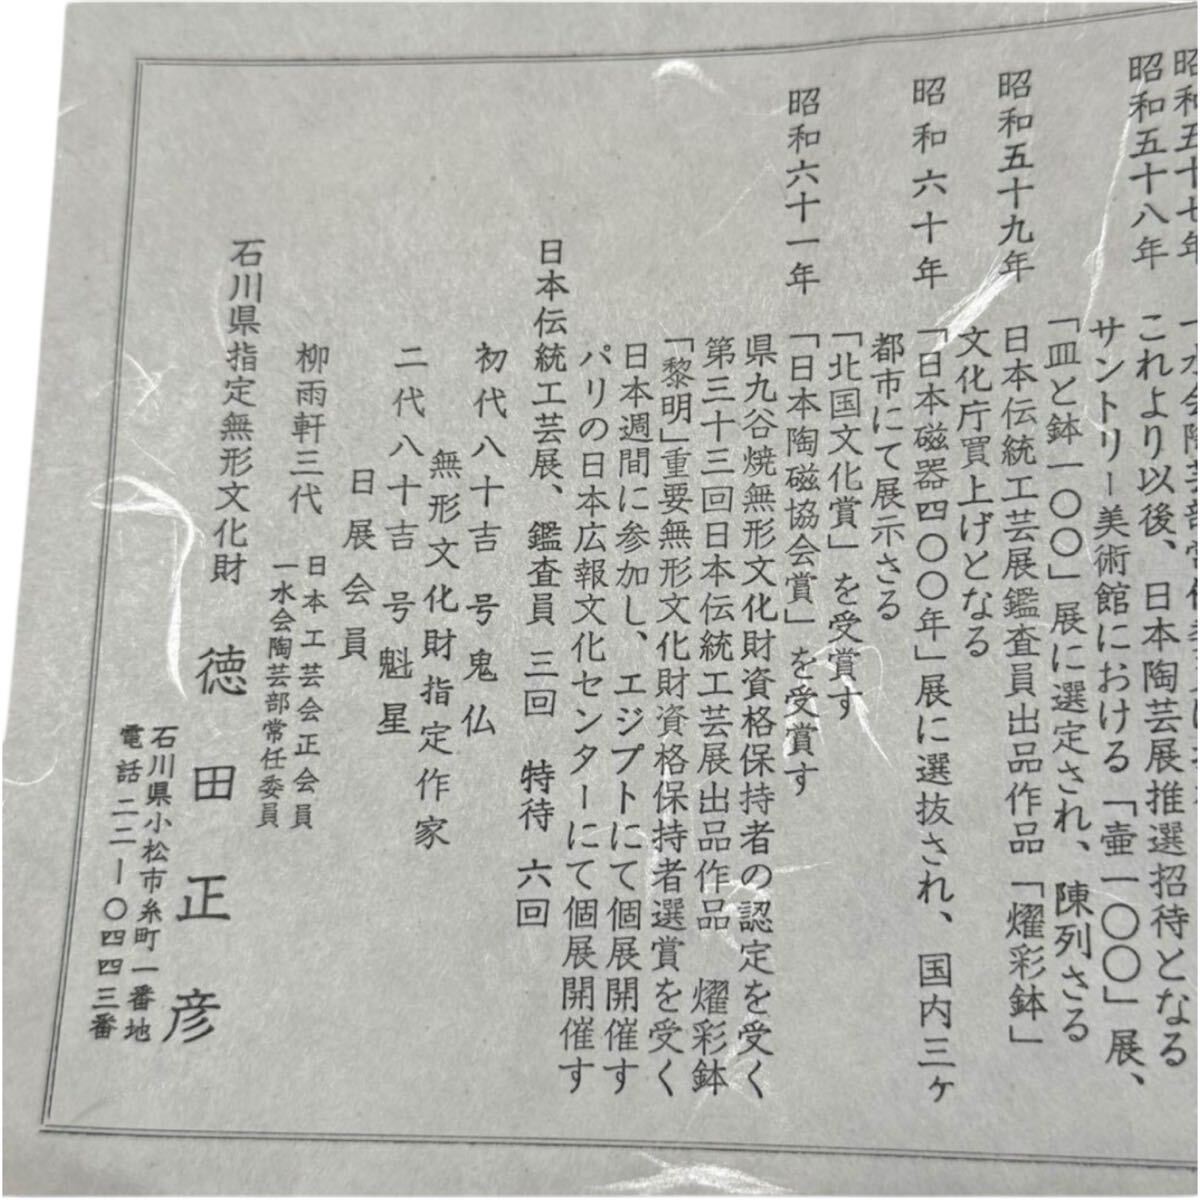 昭和五十七年　一水会陶芸部常任委員
昭和五十八年　これより以後、日本陶芸展推選招待となる
サントリー美術館における「壷一〇〇」展、
「皿と鉢一〇〇」展に選定され、陳列さる
昭和五十九年　日本伝統工芸展鑑査員出品作品「燿彩鉢」
文化庁買上げとなる
昭和六十年　「日本磁器四〇〇年」展に選抜され、国内三ヶ
都市にて展示さる
「北国文化賞」を受賞す
昭和六十一年　「日本陶磁協会賞」を受賞す
県九谷焼無形文化財資格保持者の認定を受く
第三十三回日本伝統工芸展出品作品　燿彩鉢
「黎明」重要無形文化財資格保持者選賞を受く
日本週間に参加し、エジプトにて個展開催す
パリの日本広報文化センターにて個展開催す
日本伝統工芸展、鑑査員　三回　特待　六回
初代八十吉　号鬼仏
無形文化財指定作家
二代八十吉　号魁星
日展会員
柳雨軒三代　日本工芸会正会員
一水会陶芸部常任委員
石川県指定無形文化財　徳田正彦
石川県小松市糸町一番地
電話二二ー〇四四三番